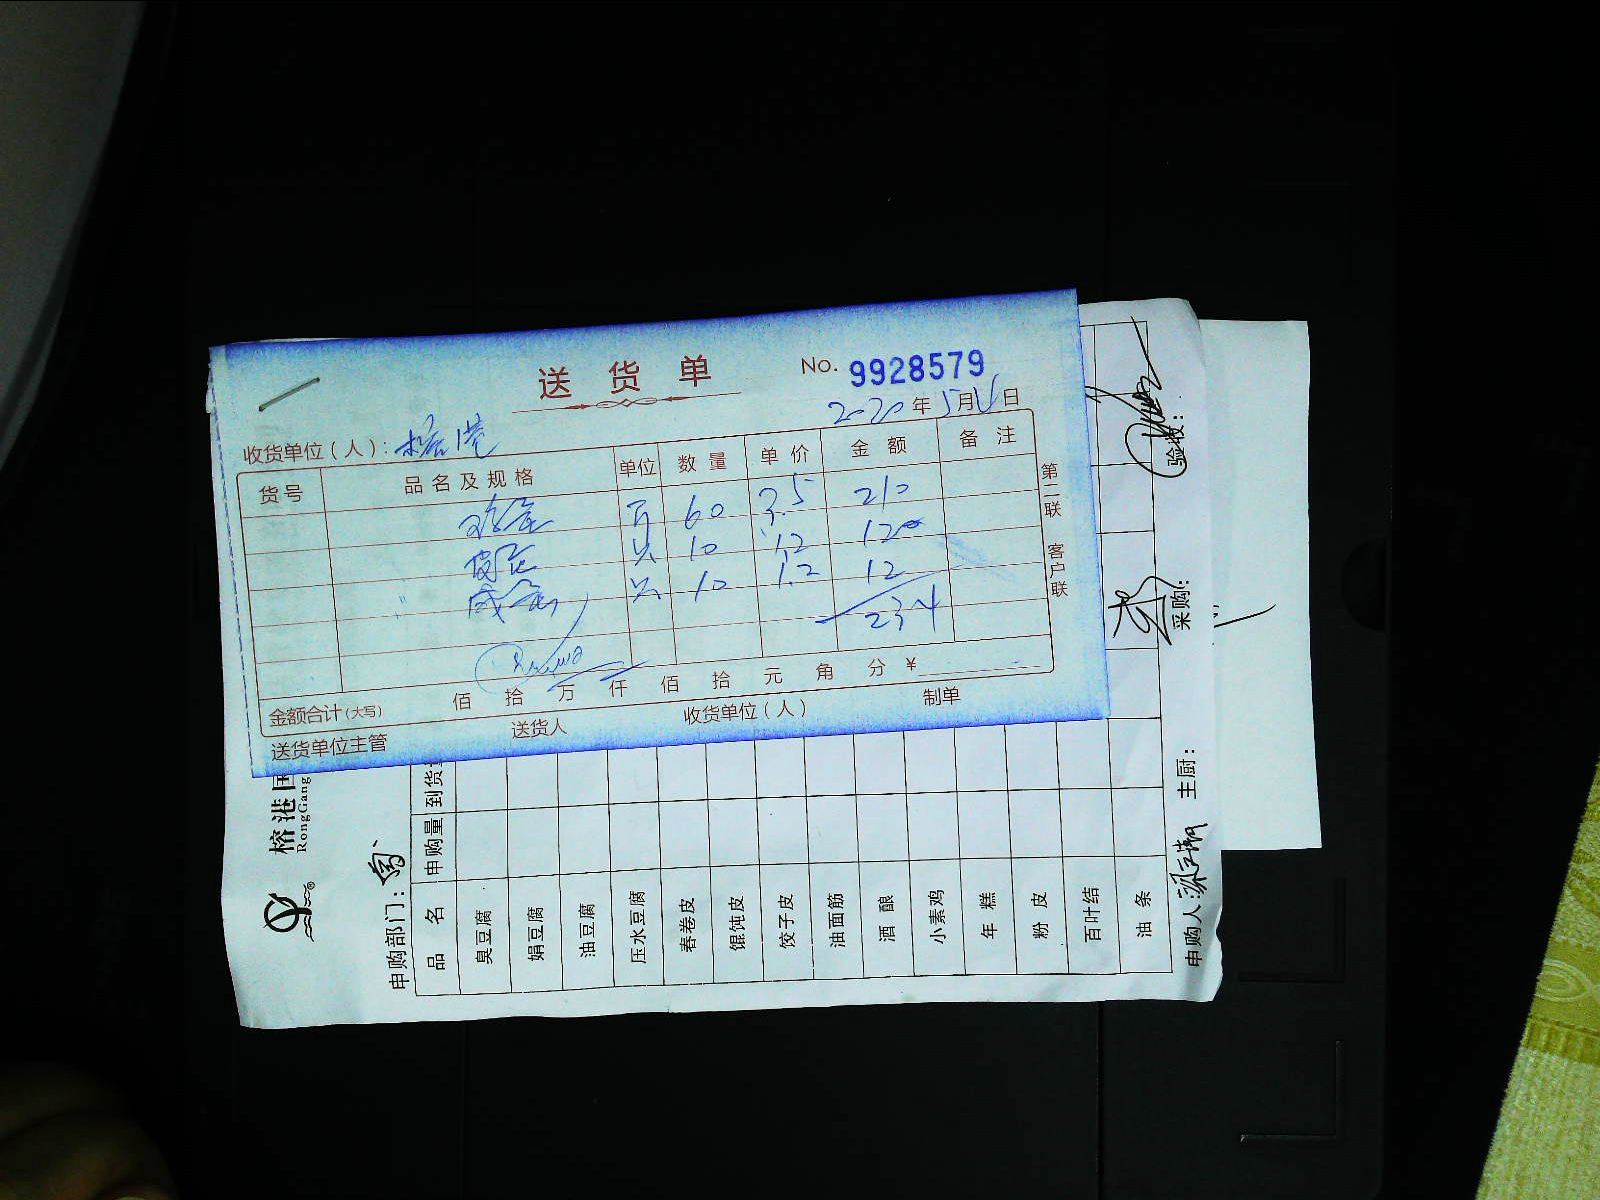 送货单
No. 9928579
2020年5月 日
收货单位(人): 榕港
货号 品名及规格 单位 数量 单价 金额 备注
鸡蛋 斤 60 3.5 210
皮蛋 只 10 1.2 12
咸蛋 只 10 1.2 12
234
金额合计(大写) 佰 拾 万 仟 佰 拾 元 角 分 ¥
送货单位主管 送货人 收货单位(人) 制单
第二联 客户联
榕港国
RongGang
®
申购部门:
品名 申购量 到货
臭豆腐
娟豆腐
油豆腐
压水豆腐
春卷皮
馄饨皮
饺子皮
油面筋
酒酿
小素鸡
年糕
粉皮
百叶结
油条
申购人: 主厨: 采购: 验收: